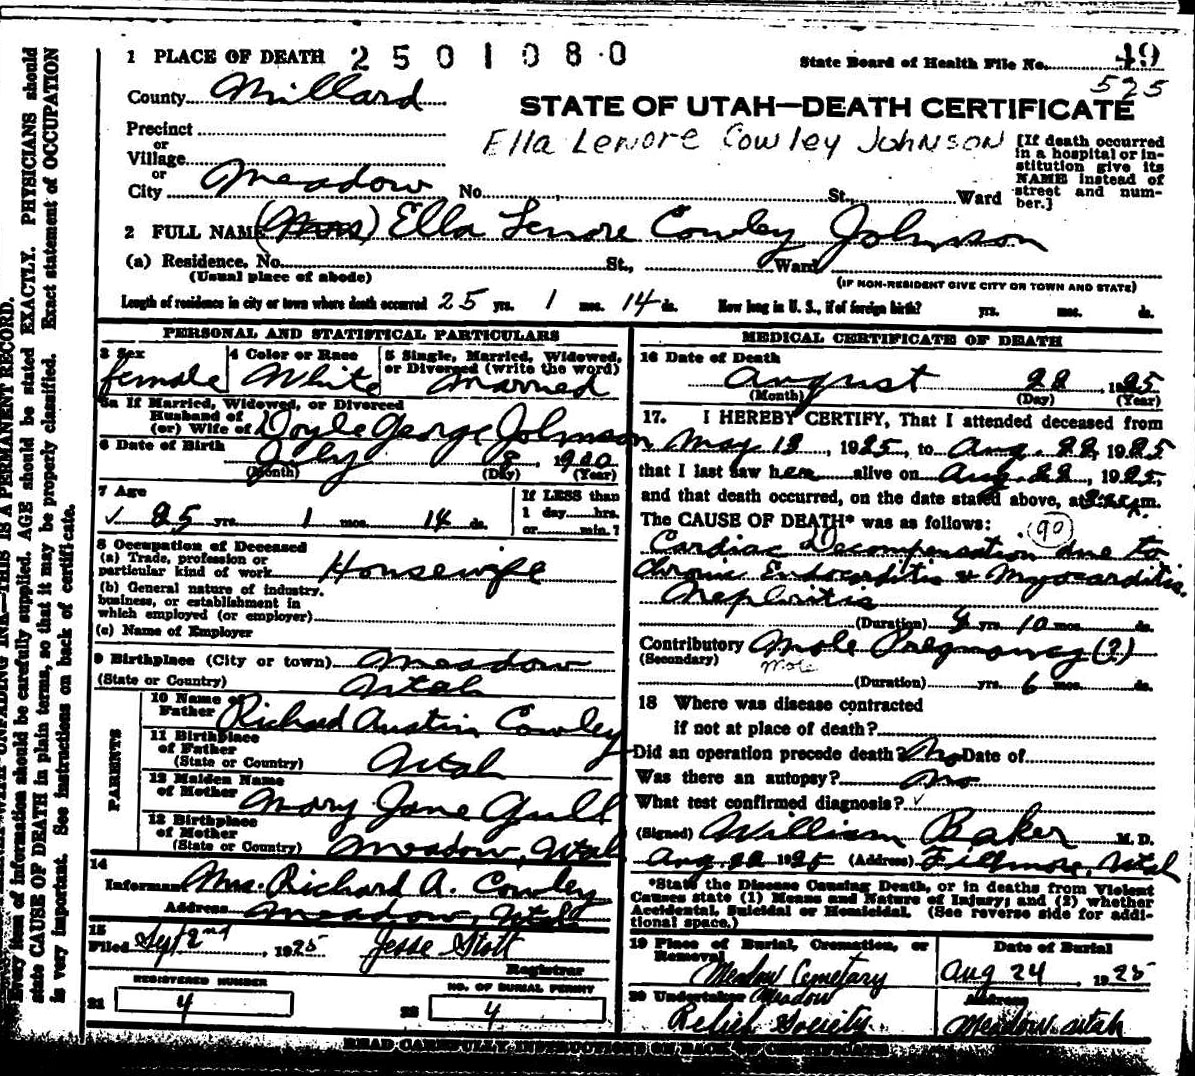 1 PLACE OF DEATH 2501080
State Board of Health File No. 49
525
County Millard
STATE OF UTAH—DEATH CERTIFICATE
Precinct
or
Village
or
City Meadow No. St., Ward
Ella Lenore Cowley Johnson
[If death occurred
in a hospital or in-
stitution give its
NAME instead of
street and num-
ber.]
2 FULL NAME (Mrs) Ella Lenore Cowley Johnson
(a) Residence, No. St., Ward
(Usual place of abode)
(IF NON-RESIDENT GIVE CITY OR TOWN AND STATE)
Length of residence in city or town where death occurred 25 yrs. 1 mos. 14 ds. How long in U. S., if of foreign birth? yrs. mos. ds.
PERSONAL AND STATISTICAL PARTICULARS
3 Sex
female
4 Color or Race
White
5 Single, Married, Widowed,
or Divorced (write the word)
Married
5a If Married, Widowed, or Divorced
Husband of
(or) Wife of Doyle George Johnson
6 Date of Birth
July 8, 1900
(Month) (Day) (Year)
7 Age
✓ 25 yrs. 1 mos. 14 ds.
If LESS than
1 day hrs.
or min.?
8 Occupation of Deceased
(a) Trade, profession or
particular kind of work Housewife
(b) General nature of industry,
business, or establishment in
which employed (or employer)
(c) Name of Employer
9 Birthplace (City or town) Meadow
(State or Country) Utah
PARENTS
10 Name of
Father Richard Austin Cowley
11 Birthplace
of Father
(State or Country) Utah
12 Maiden Name
of Mother Mary Jane Gull
13 Birthplace
of Mother
(State or Country) Meadow, Utah
14
Informant Mrs. Richard A. Cowley
Address Meadow, Utah
15
Filed Sept 2nd, 1925 Jesse Stott
Registrar
REGISTERED NUMBER
21 4
NO. OF BURIAL PERMIT
22 4
MEDICAL CERTIFICATE OF DEATH
16 Date of Death
August 22 1925
(Month) (Day) (Year)
17. I HEREBY CERTIFY, That I attended deceased from
May 12, 1925, to Aug. 22, 1925
that I last saw her alive on Aug. 22, 1925,
and that death occurred, on the date stated above, at m.
The CAUSE OF DEATH* was as follows:
90
Cardiac Decompensation due to
Chronic Endocarditis & Myocarditis.
Nephritis
(Duration) yrs. 10 mos. ds.
Contributory Mole Pregnancy (?)
(Secondary) Mole
(Duration) yrs. 6 mos. ds.
18 Where was disease contracted
if not at place of death?
Did an operation precede death? No Date of
Was there an autopsy? No
What test confirmed diagnosis? ✓
(Signed) William Baker M. D.
Aug. 22 1925 (Address) Fillmore, Utah
*State the Disease Causing Death, or in deaths from Violent
Causes state (1) Means and Nature of Injury; and (2) whether
Accidental, Suicidal or Homicidal. (See reverse side for addi-
tional space.)
19 Place of Burial, Cremation, or
Removal
Meadow Cemetary
Date of Burial
Aug 24, 1925
20 Undertaker Meadow
Relief Society
Address
Meadow Utah
READ CAREFULLY INSTRUCTIONS ON BACK OF CERTIFICATE
UNFADING INK—THIS IS A PERMANENT RECORD.
Every item of information should be carefully supplied. AGE should be stated EXACTLY. PHYSICIANS should
state CAUSE OF DEATH in plain terms, so that it may be properly classified. Exact statement of OCCUPATION
is very important. See instructions on back of certificate.